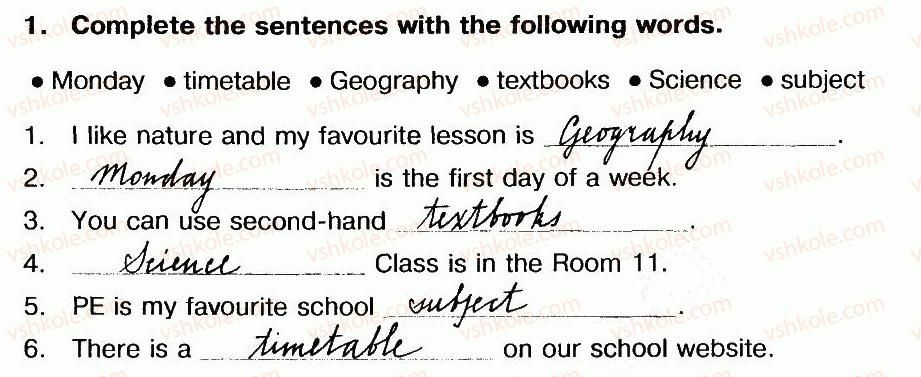 1. Complete the sentences with the following words.
• Monday • timetable • Geography • textbooks • Science • subject
1. I like nature and my favourite lesson is Geography.
2. Monday is the first day of a week.
3. You can use second-hand textbooks.
4. Science Class is in the Room 11.
5. PE is my favourite school subject.
6. There is a timetable on our school website.